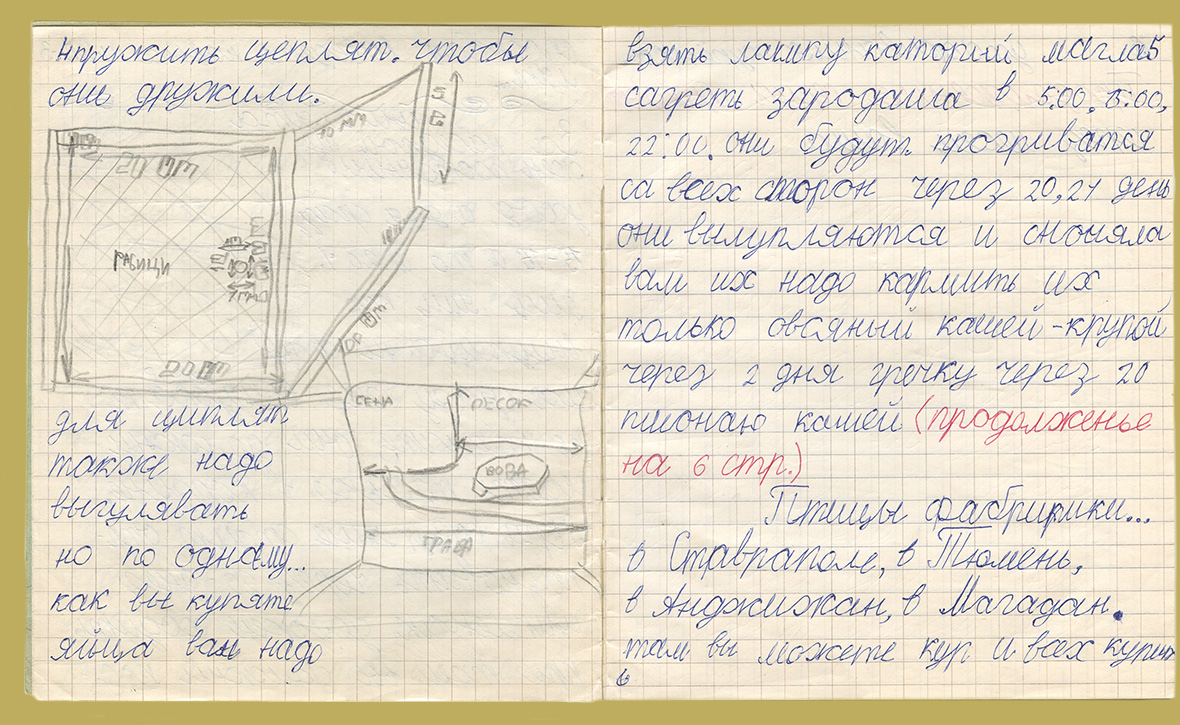 дружить цеплят. чтобы
они дружили.
10 мм
рабици
сена
песок
вова
трава
для циплят
также надо
выгулявать
но по одному...
как вы купяте
яйца вам надо
взять лампу каторий магла
5
сагреть зародаша в 5:00, 15:00,
22:00. они будут прогриватся
са всех сторон через 20,21 день
они вылупляются и сночяла
вам их надо кармить их
только овсяный кашей-крупой
через 2 дня гречку через 20
пшонаю кашей (продолженье
на 6 стр.)
Птицы фабририки...
в Ставраполе, в Тюмень,
в Анджижан, в Магадан.
там вы можете кур и всех куриц
6